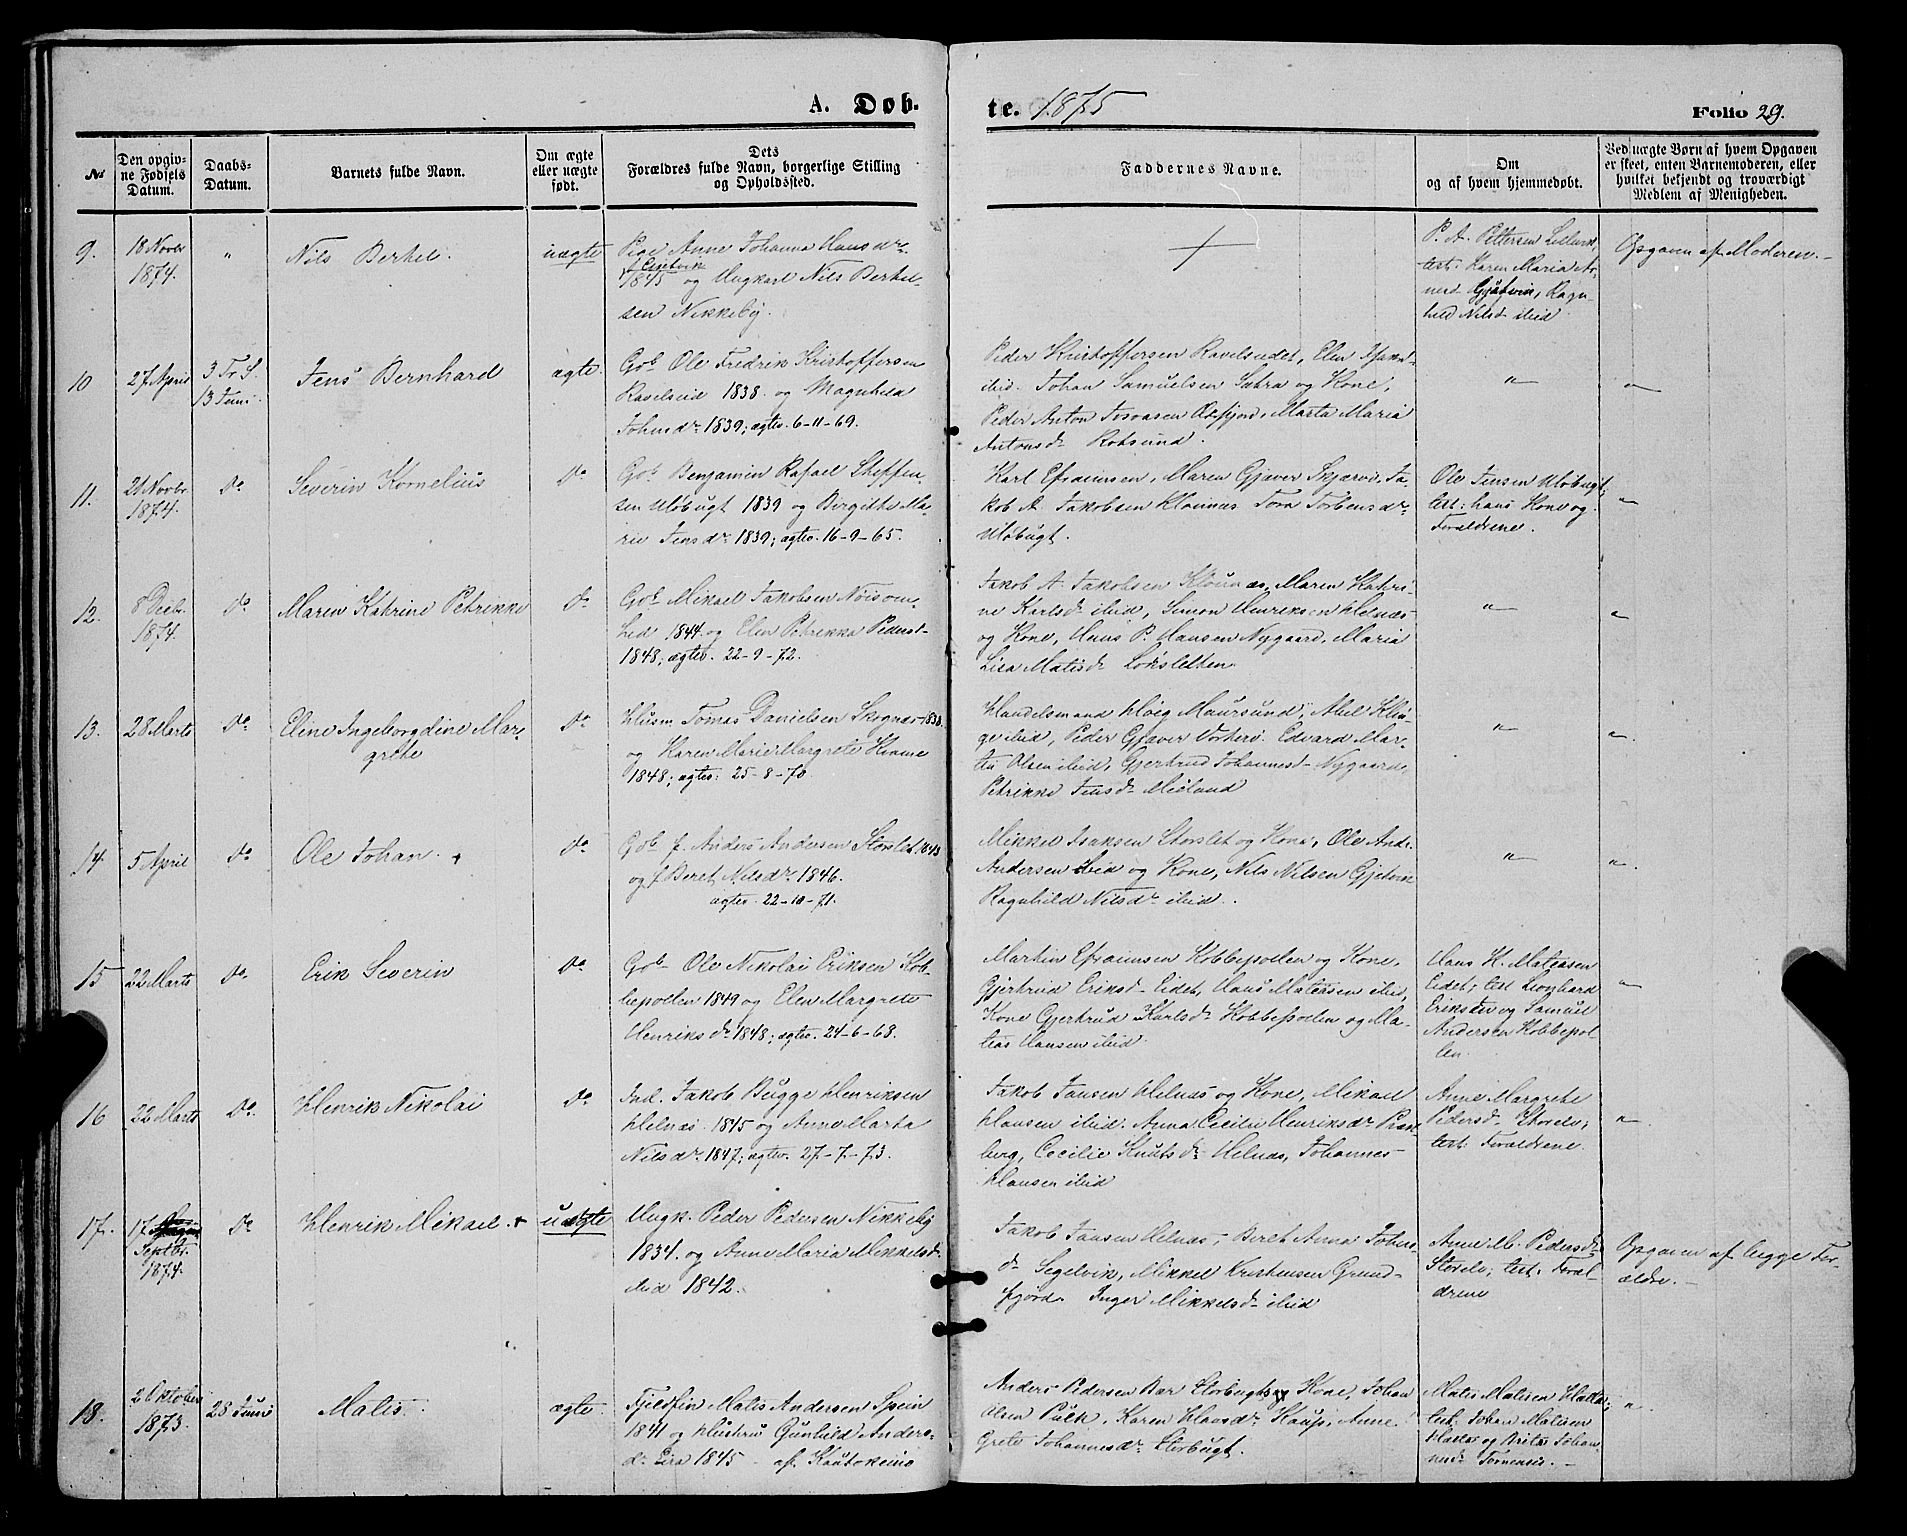 A. Døb-
te. 1875
Folio 29.
No
Den opgiv-
ne Fødsels
Datum.
Daabs-
Datum.
Barnets fulde Navn.
Om ægte
eller uægte
født.
Dets
Forældres fulde Navn, borgerlige Stilling
og Opholdssted.
Faddernes Navne.
Om
og af hvem hjemmedøbt.
Ved uægte Børn af hvem Opgaven
er skeet, enten Barnemoderen, eller
hvilket bekjendt og troværdigt
Medlem af Menigheden.
9.
18 Novbr
1874.
"
Nils Berhel.
uægte
Pige Anne Johanna Hansdr.
1845 og Ungkarl Nils Berhel-
sen Nikkeby.
P. A. Pettersen
test: Karen Maria
Gjøvik, Ragn-
hild Nilsd ibid
Opgaven af Moderen.
10
27 April
3 Tr. S.
13 Juni
Jens Bernhard
ægte.
Gbr Ole Fredrik Kristoffersen
Ravelseid 1838 og Magnhild
Johnsdr. 1839; ægtev. 6-11-69.
Peder Kristoffersen Ravelseidet, Elen
ibid. Johan Samuelsen og Kone,
Peder Anton Marta Maria
Antonsdr Rotsund.
"
"
11.
21 Novbr.
1874.
Do
Severin Kornelius
Do
Gbr Benjamin Rafael Steffen-
sen Uløbugt 1839 og Birgitte Ma-
rie Jensdr. 1839; ægtev. 16-9-65.
Karl Efraimsen, Maren Gjæver Skjærvø, Ja-
kob A. Jakobsen Klaunes Torbensdr.
Uløbugt.
Ole Jensen Uløbugt;
test: hans Kone og
Forældrene.
"
12.
8 Decbr.
1874.
Do
Maren Katrine Petrikke
Do
Gbr Mikael Jakobsen Nøisom-
hed 1844 og Elen Petrikka Pedersd.
1848; ægtev. 22-9-72.
Jakob A. Jakobsen Klaunæs, Maren Katri-
ne Karlsdr ibid, Simon Henriksen Helnæs
og Kone, Hans P. Hansen Nygaard, Maria
Lisa Matisdr Lökvletten
"
"
13.
28 Marts
Do
Eline Ingeborgdine Mar-
grete
Do
Husm. Tomas Danielsen Skognæs 1838
og Karen Marie Margrete
1848; ægtev. 25-8-70.
Handelsmand Høeg Maursund, Abel
ibid, Peder Gjæver Vorterø. Edvard
Olsen ibid, Gjertrud Johannesd. Nygaard,
Petrikke Jensdr Meiland
"
"
14.
5 April
Do
Ole Johan. +
Do
Gbr f. Anders Andersen Storslet 1843
og f Beret Nilsdr. 1846.
ægtev. 22-10-71.
Mikkel Isaksen Storslet og Kone, Ole And.
Andersen ibid og Kone, Nils Nilsen Gjetvik
Ragnhild Nilsdr ibid.
"
"
15
22 Marts
Do
Erik Severin
Do
Gbr Ole Nikolai Eriksen Kob-
bepollen 1849 og Elen Margrete
Henriksdr. 1848; ægtev. 24-6-68.
Martin Efraimsen Kobbepollen og Kone,
Gjertrud Eriksd. Eidet, Hans Mateasen ibid,
Kone Gjertrud Karlsdr Kobbepollen og Ma-
teas Hansen ibid
Hans H. Mateasen
Eidet; test Leonhard
Eriksen og Samuel
Andersen Kobbepol-
len.
"
16
22 Marts
Do.
Henrik Nikolai
Do
Ind. Jakob Bugge Henriksen
Helnæs. 1845 og Anne Marta
Nilsdr. 1847; ægtev. 27-7-73.
Jakob Jansen Helnæs og Kone, Mikael
Hansen ibid. Anna Cecilie Henriksdr
berg, Cecilie Knutsdr Helnæs, Johannes
Hansen ibid
Anne Margrete
Pedersdr Storelv;
test: Forældrene.
"
17.
17
Septbr.
1874.
Do
Henrik Mikael. +
uægte
Ungk. Peder Pedersen Nikkeby
1834. og Anne Maria Mikkelsdr
ibid 1842.
Jakob Jansen Helnæs, Beret Anna Johns-
dr Segelvik, Mikkel Kristensen Grund-
fjord. Inger Mikkelsdr ibid
Anne M. Pedersdr
Storelv; test: Foræl-
drene
Opgaven af begge For-
ældre.
18.
2 Oktober
1873.
28 Juni
Matis.
ægte
Fjeldfin Matis Andersen Spein
1841 og Hustru Gunhild Anders-
dr Eira 1845 af Kautokeino
Anders Pedersen Bær Storbugt og Kone, Johan
Olsen Pulk, Karen Hansdr. Kaup, Anne
Grete Johannesdr. Storbugt.
Matis Matisen Hætta;
test: Johan Matisen
Hætta og Brita Johan-
nesdr Tornensis.
"